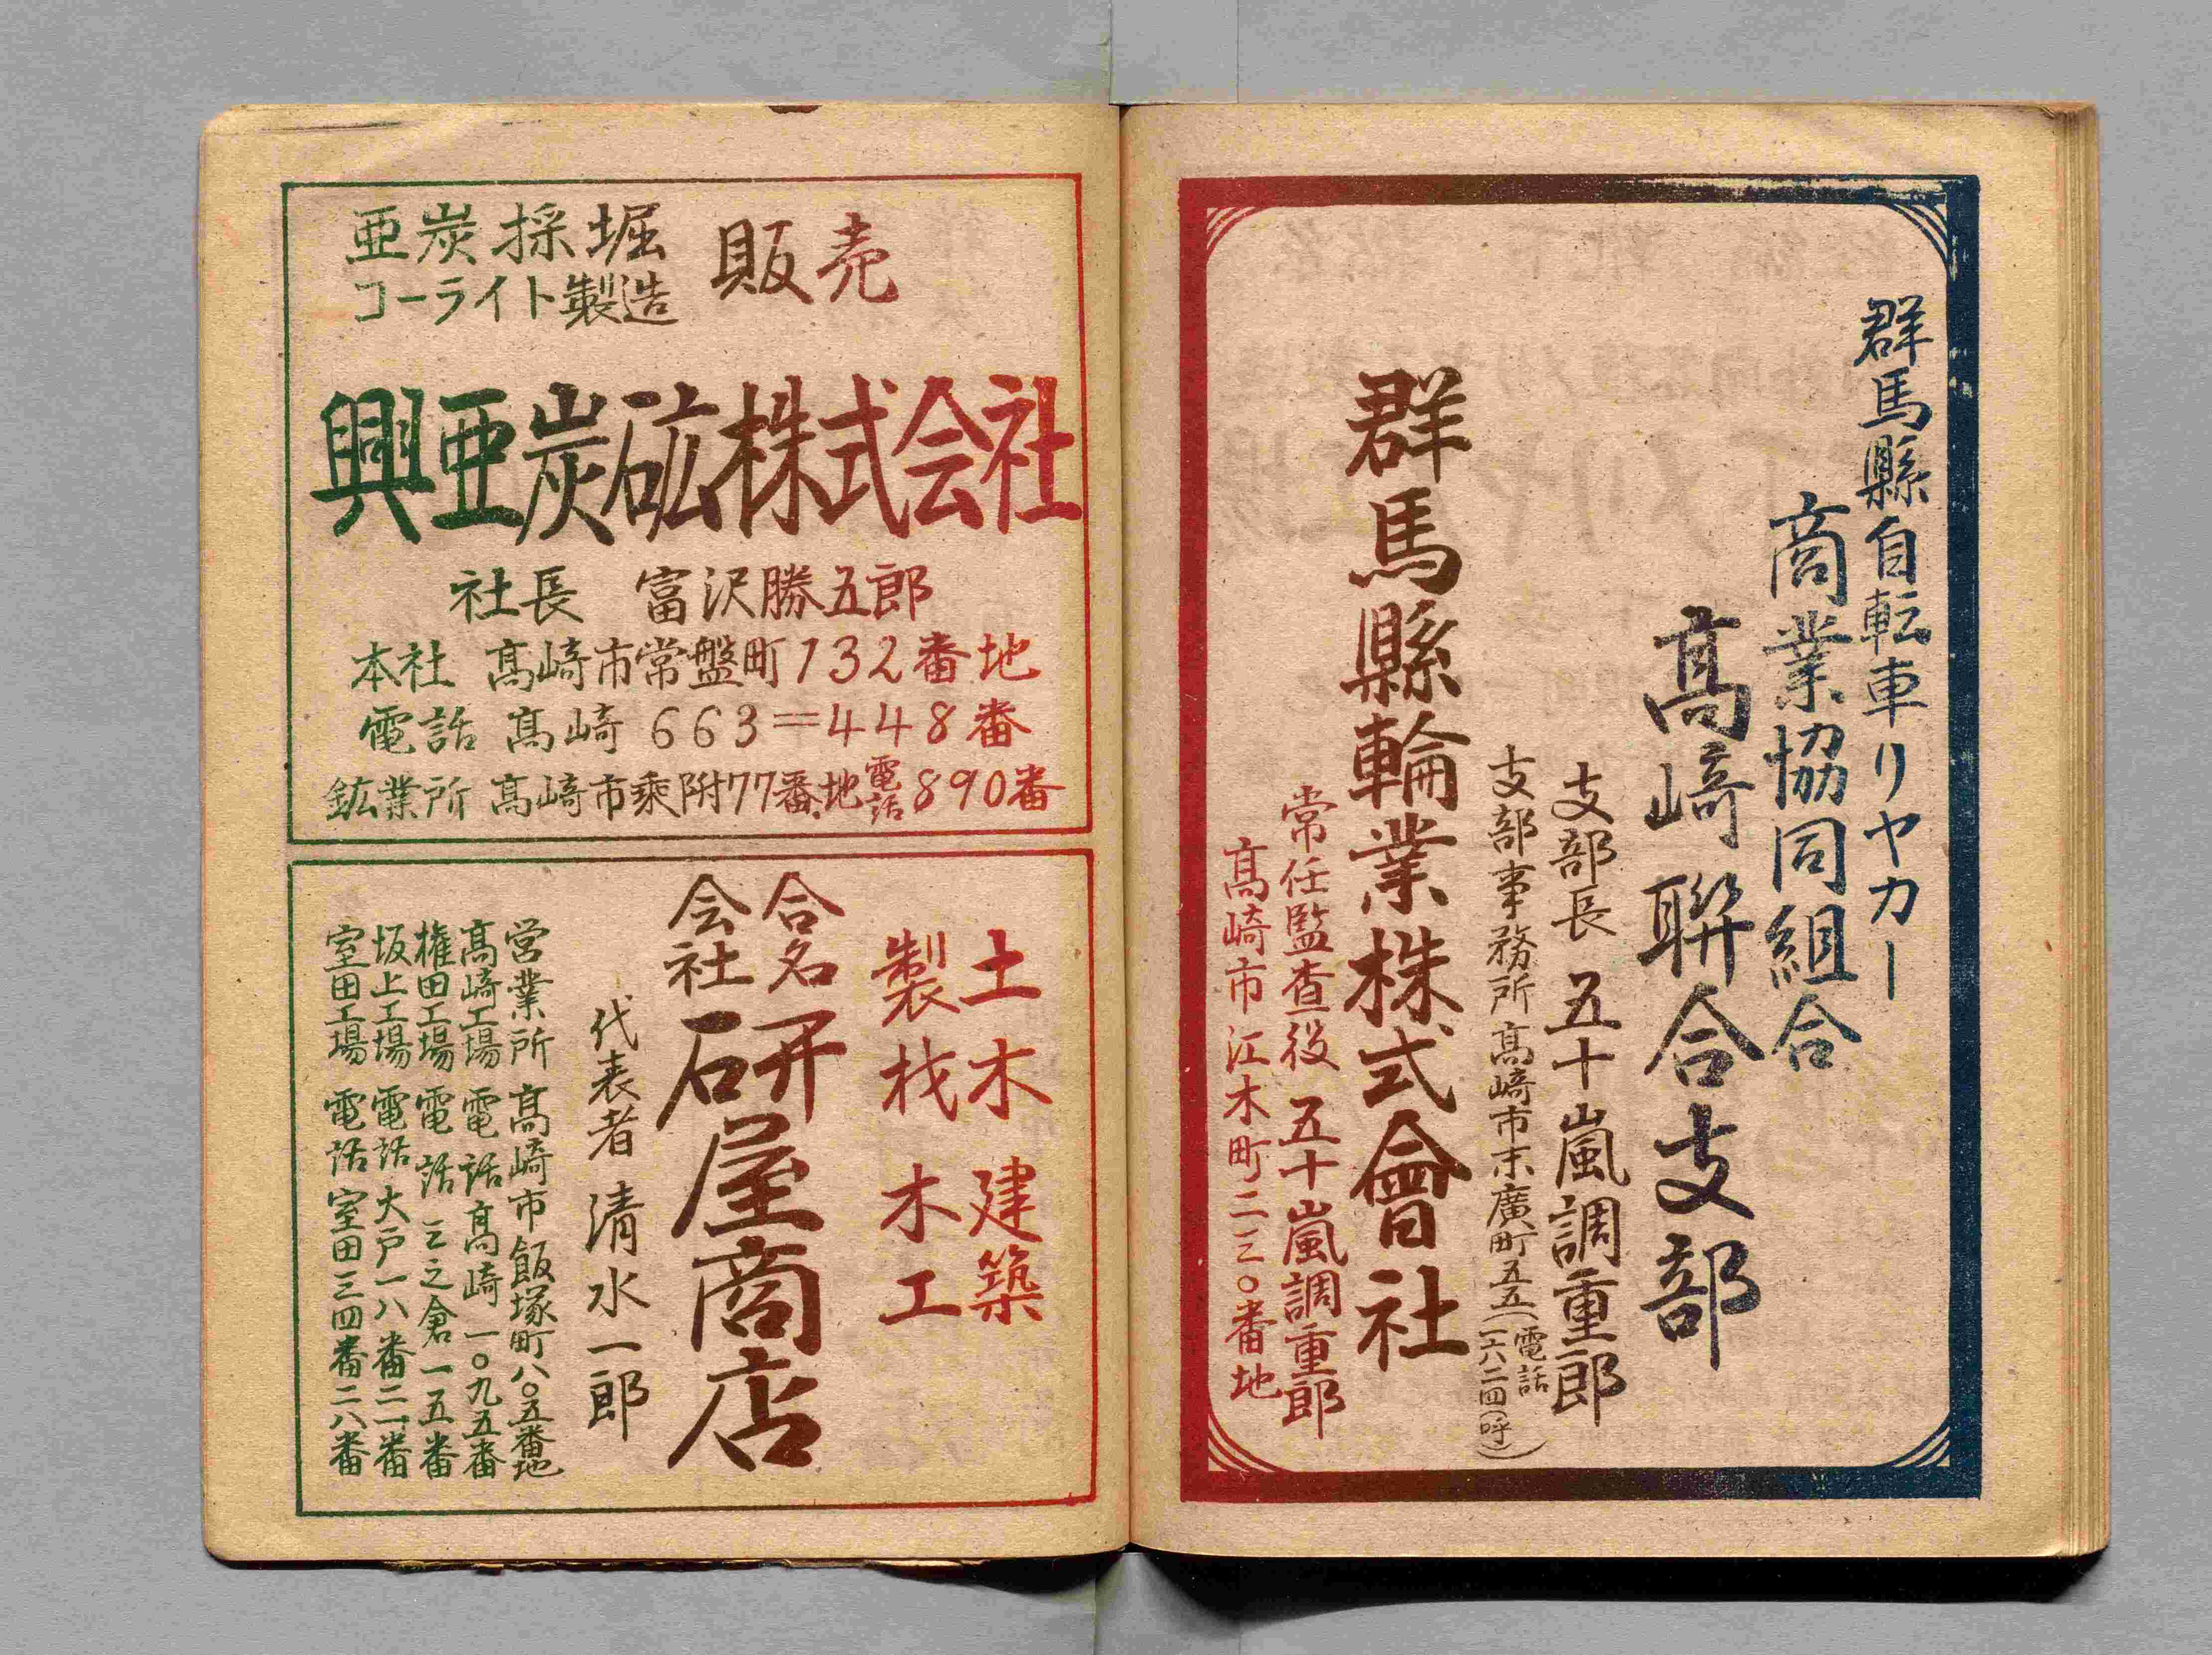 群馬縣自転車リヤカー
商業協同組合
髙﨑聨合支部
支部長 五十嵐調重郎
支部事務所 髙﨑市末廣町五五(電話一六二四(呼))
群馬縣輪業株式會社
常任監査役 五十嵐調重郎
髙﨑市江木町二三〇番地
亜炭採堀
コーライト製造
販売
興亜炭砿株式会社
社長 富沢勝五郎
本社 髙﨑市常盤町132番地
電話 髙﨑 663=448番
鉱業所 髙﨑市乘附77番地電話890番
土木 建築
製材 木工
合名会社 研屋商店
代表者 清水一郎
営業所 髙﨑市飯塚町八〇五番地
髙﨑工場 電話髙﨑一〇九五番
権田工場 電話三之倉一五番
坂上工場 電話大戸一八番二一番
室田工場 電話室田三四番二八番